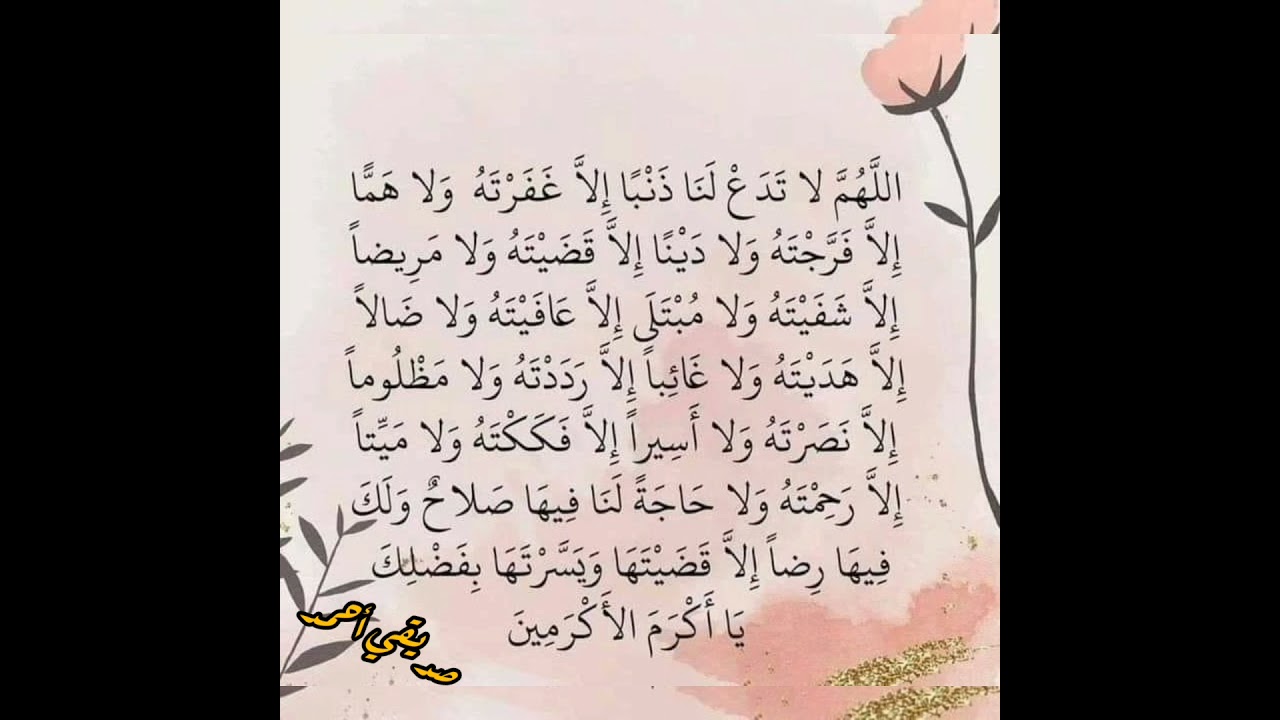 اللَّهُمَّ لا تَدَعْ لَنَا ذَنْبًا إِلاَّ غَفَرْتَهُ وَلا هَمًّا
إِلاَّ فَرَّجْتَهُ وَلا دَيْنًا إِلاَّ قَضَيْتَهُ وَلا مَرِيضاً
إِلاَّ شَفَيْتَهُ وَلا مُبْتَلَى إِلاَّ عَافَيْتَهُ وَلا ضَالاً
إِلاَّ هَدَيْتَهُ وَلا غَائِباً إِلاَّ رَدَدْتَهُ وَلا مَظْلُوماً
إِلاَّ نَصَرْتَهُ وَلا أَسِيراً إِلاَّ فَكَكْتَهُ وَلا مَيِّتاً
إِلاَّ رَحِمْتَهُ وَلا حَاجَةً لَنَا فِيهَا صَلاحٌ وَلَكَ
فِيهَا رِضاً إِلاَّ قَضَيْتَهَا وَيَسَّرْتَهَا بِفَضْلِكَ
يَا أَكْرَمَ الأَكْرَمِينَ
أحمد